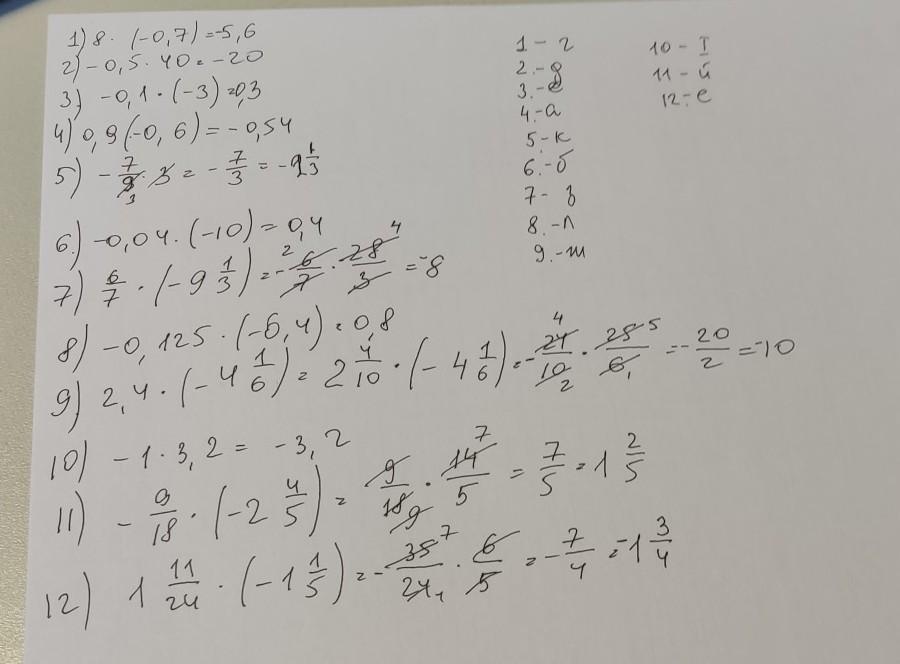 1) 8 · (-0,7) = -5,6
2) -0,5 · 40 = -20
3) -0,1 · (-3) = 0,3
4) 0,9 (-0,6) = -0,54
5) - 7/9 3 · 3 = - 7/3 = -2 1/3
6) -0,04 · (-10) = 0,4
7) 6/7 · (-9 1/3) = - 2 6/7 · 28 4/3 = -8
8) -0,125 · (-6,4) = 0,8
9) 2,4 · (-4 1/6) = 2 4/10 · (-4 1/6) = - 4 24/10 2 · 25 5/6 1 = - 20/2 = -10
10) -1 · 3,2 = -3,2
11) - 9/18 · (-2 4/5) = 9/18 9 · 14 7/5 = 7/5 = 1 2/5
12) 1 11/24 · (-1 1/5) = - 35 7/24 4 · 6/5 = - 7/4 = -1 3/4
1 - г
2. - д
3. - е
4. - а
5 - к
6. - б
7 - з
8. - л
9. - ш
10 - І
11 - й
12 - е